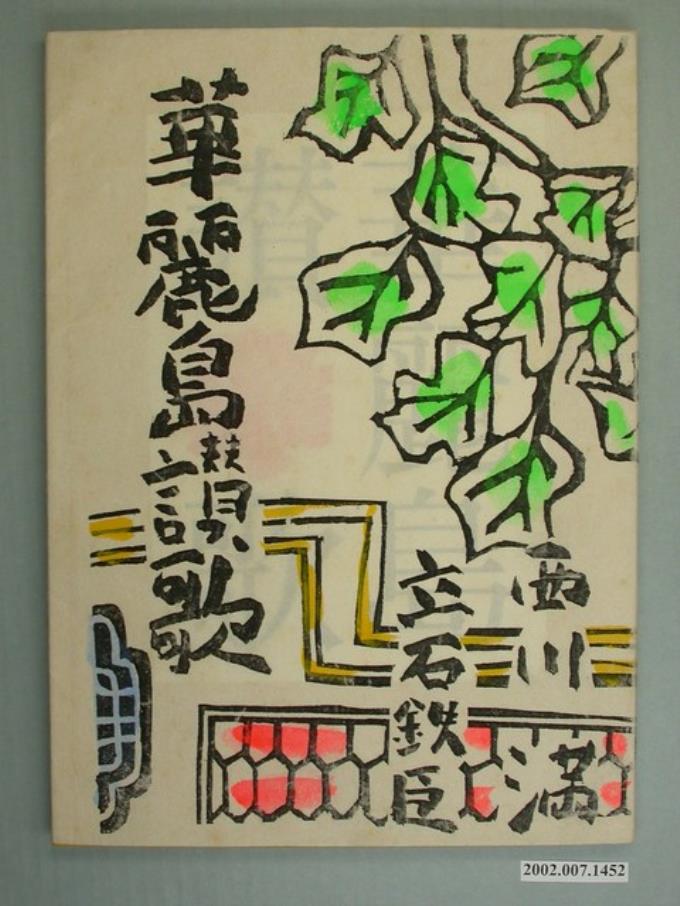 華麗島讃歌
西川満
立石鉄臣
2002.007.1452